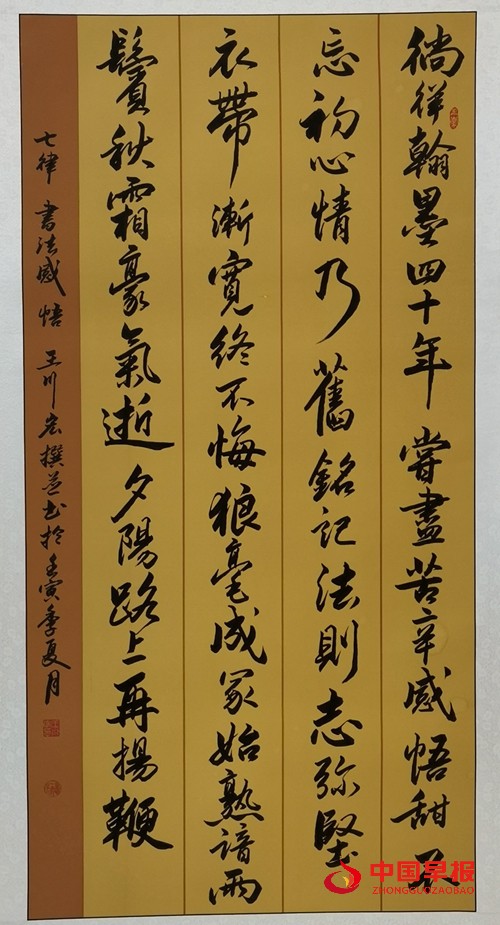 徜徉翰墨四十年嘗盡苦辛感悟甜不
忘初心情乃舊銘記法則志弥堅
衣帶漸寬終不悔狼毫成冢始熟諳兩
鬢秋霜豪氣逝夕陽路上再揚鞭
七律 書法感悟 王川宏撰並书於壬寅季夏月
中国早报
ZHONGGUOZAOBAO